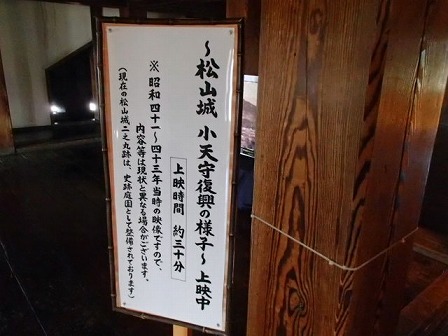 ～松山城 小天守復興の様子～上映中
上映時間 約三十分
※昭和四十一～四十三年当時の映像ですので、
内容等は現状と異なる場合がございます。
（現在の松山城二之丸跡は、史跡庭園として整備されております）